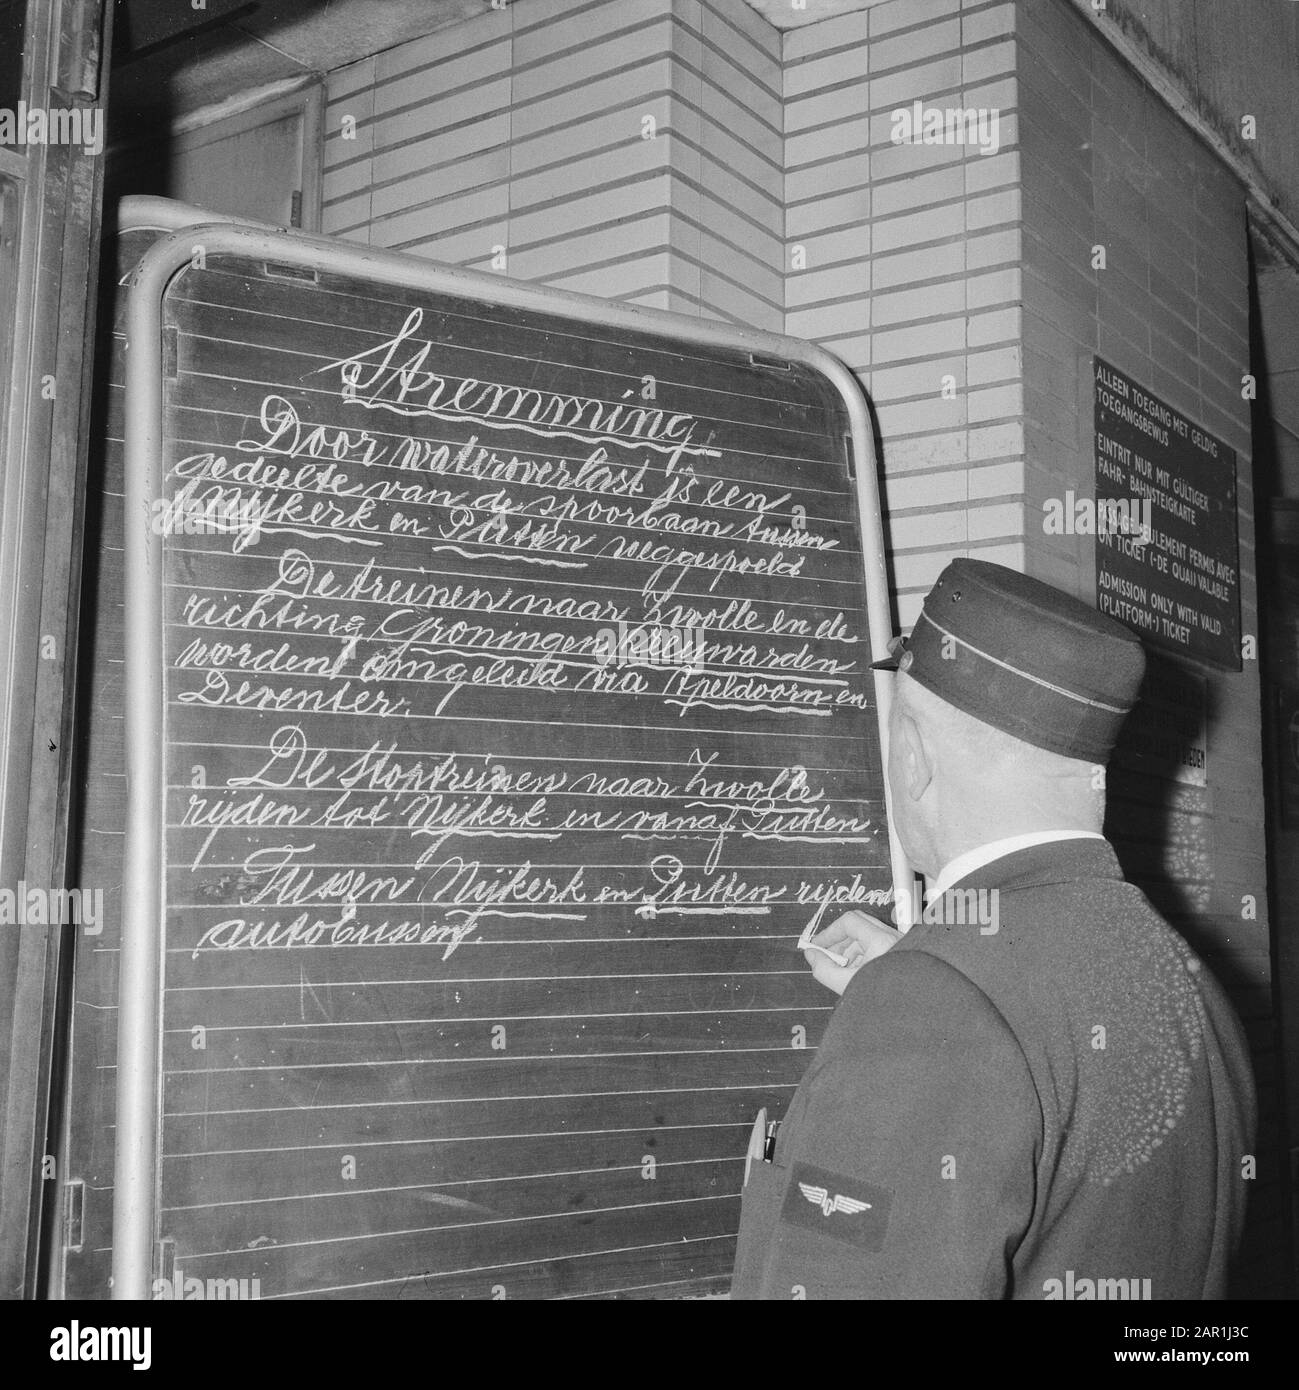 Stremming
Door wateroverlast is een
gedeelte van de spoorbaan tussen
Nijkerk en Putten weggespoeld
De treinen naar Zwolle en de
richting Groningen/Leeuwarden
worden omgeleid via Apeldoorn en
Deventer.
De stoptreinen naar Zwolle
rijden tot Nijkerk en vanaf Putten.
Tussen Nijkerk en Putten rijden
autobussen.
ALLEEN TOEGANG MET GELDIG
TOEGANGSBEWIJS
EINTRIT NUR MIT GÜLTIGER
FAHR- BAHNSTEIGKARTE
PASSAGE SEULEMENT PERMIS AVEC
UN TICKET (-DE QUAI) VALABLE
ADMISSION ONLY WITH VALID
(PLATFORM-) TICKET
alamy
alamy
alamy
alamy
alamy
Image ID: 2AR1J3C
www.alamy.com